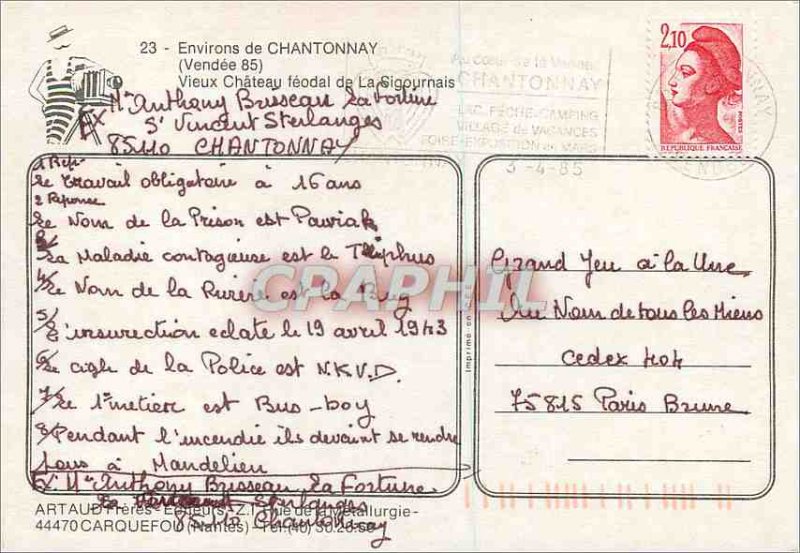 23 - Environs de CHANTONNAY
(Vendée 85)
Vieux Château féodal de La Sigournais
Ex Mr Anthony Brisseau La Fortune
St Vincent Sterlanges
85110 CHANTONNAY
Au Cœur de la Vendée
CHANTONNAY
LAC. PÊCHE-CAMPING
VILLAGE de VACANCES
FOIRE-EXPOSITION de MARS
3 -4-85
CHANTONNAY
VENDÉE
2,10
POSTES
REPUBLIQUE FRANÇAISE
1 Rep/
Le travail obligatoire à 16 ans
2 Reponse
Le Nom de la Prison est Pawiak
3/ La Maladie contagieuse est le Thiphus
4/ Le Nom de la Riviere est la Bug
5/ L'insurection eclate le 19 avril 1943
6/ Le cigle de la Police est N.K.V.D.
7/ Le 1er metiere est Bus-boy
8/ Pendant l'incendie ils devaint se rendre
tous à Mandelieu
Ex Mr Anthony Brisseau La Fortune
St Sterlanges
85110 Chantonnay
CPARHIL
Imprimé en C.E.E.
Grand Jeu à la Une
Au Nom de tous les Miens
Cedex 404
75815 Paris Brune
ARTAUD Frères - Editeurs, Z.I. - rue de la Métallurgie -
44470 CARQUEFOU (Nantes) - Tél. (40) 30.26.50